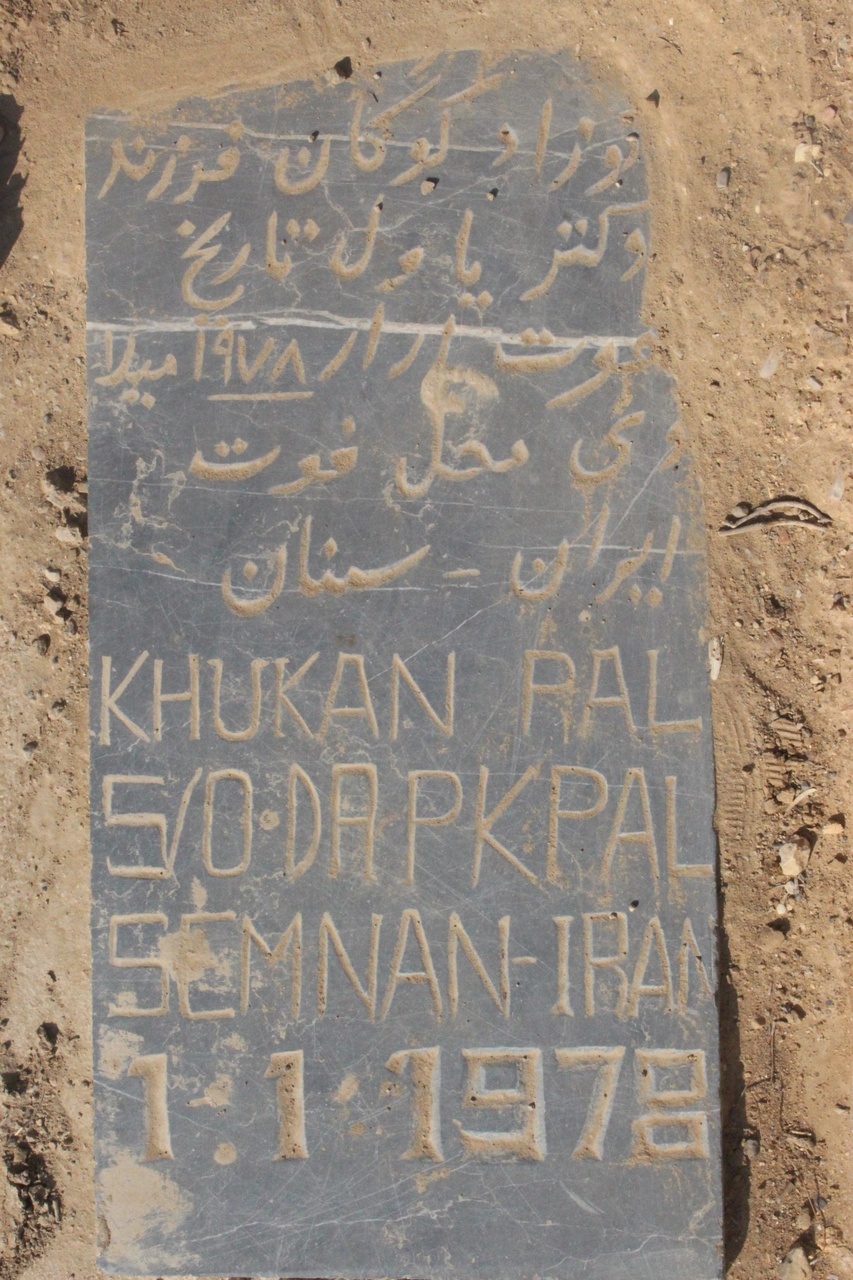 نوزاد کوکان فرزند
دکتر پاول تاریخ
فوت ۱۹۷۸ میلا
دی محل فوت
ایران - سمنان
KHUKAN PAL
S/O.DA PK PAL
SEMNAN-IRAN
1.1.1978